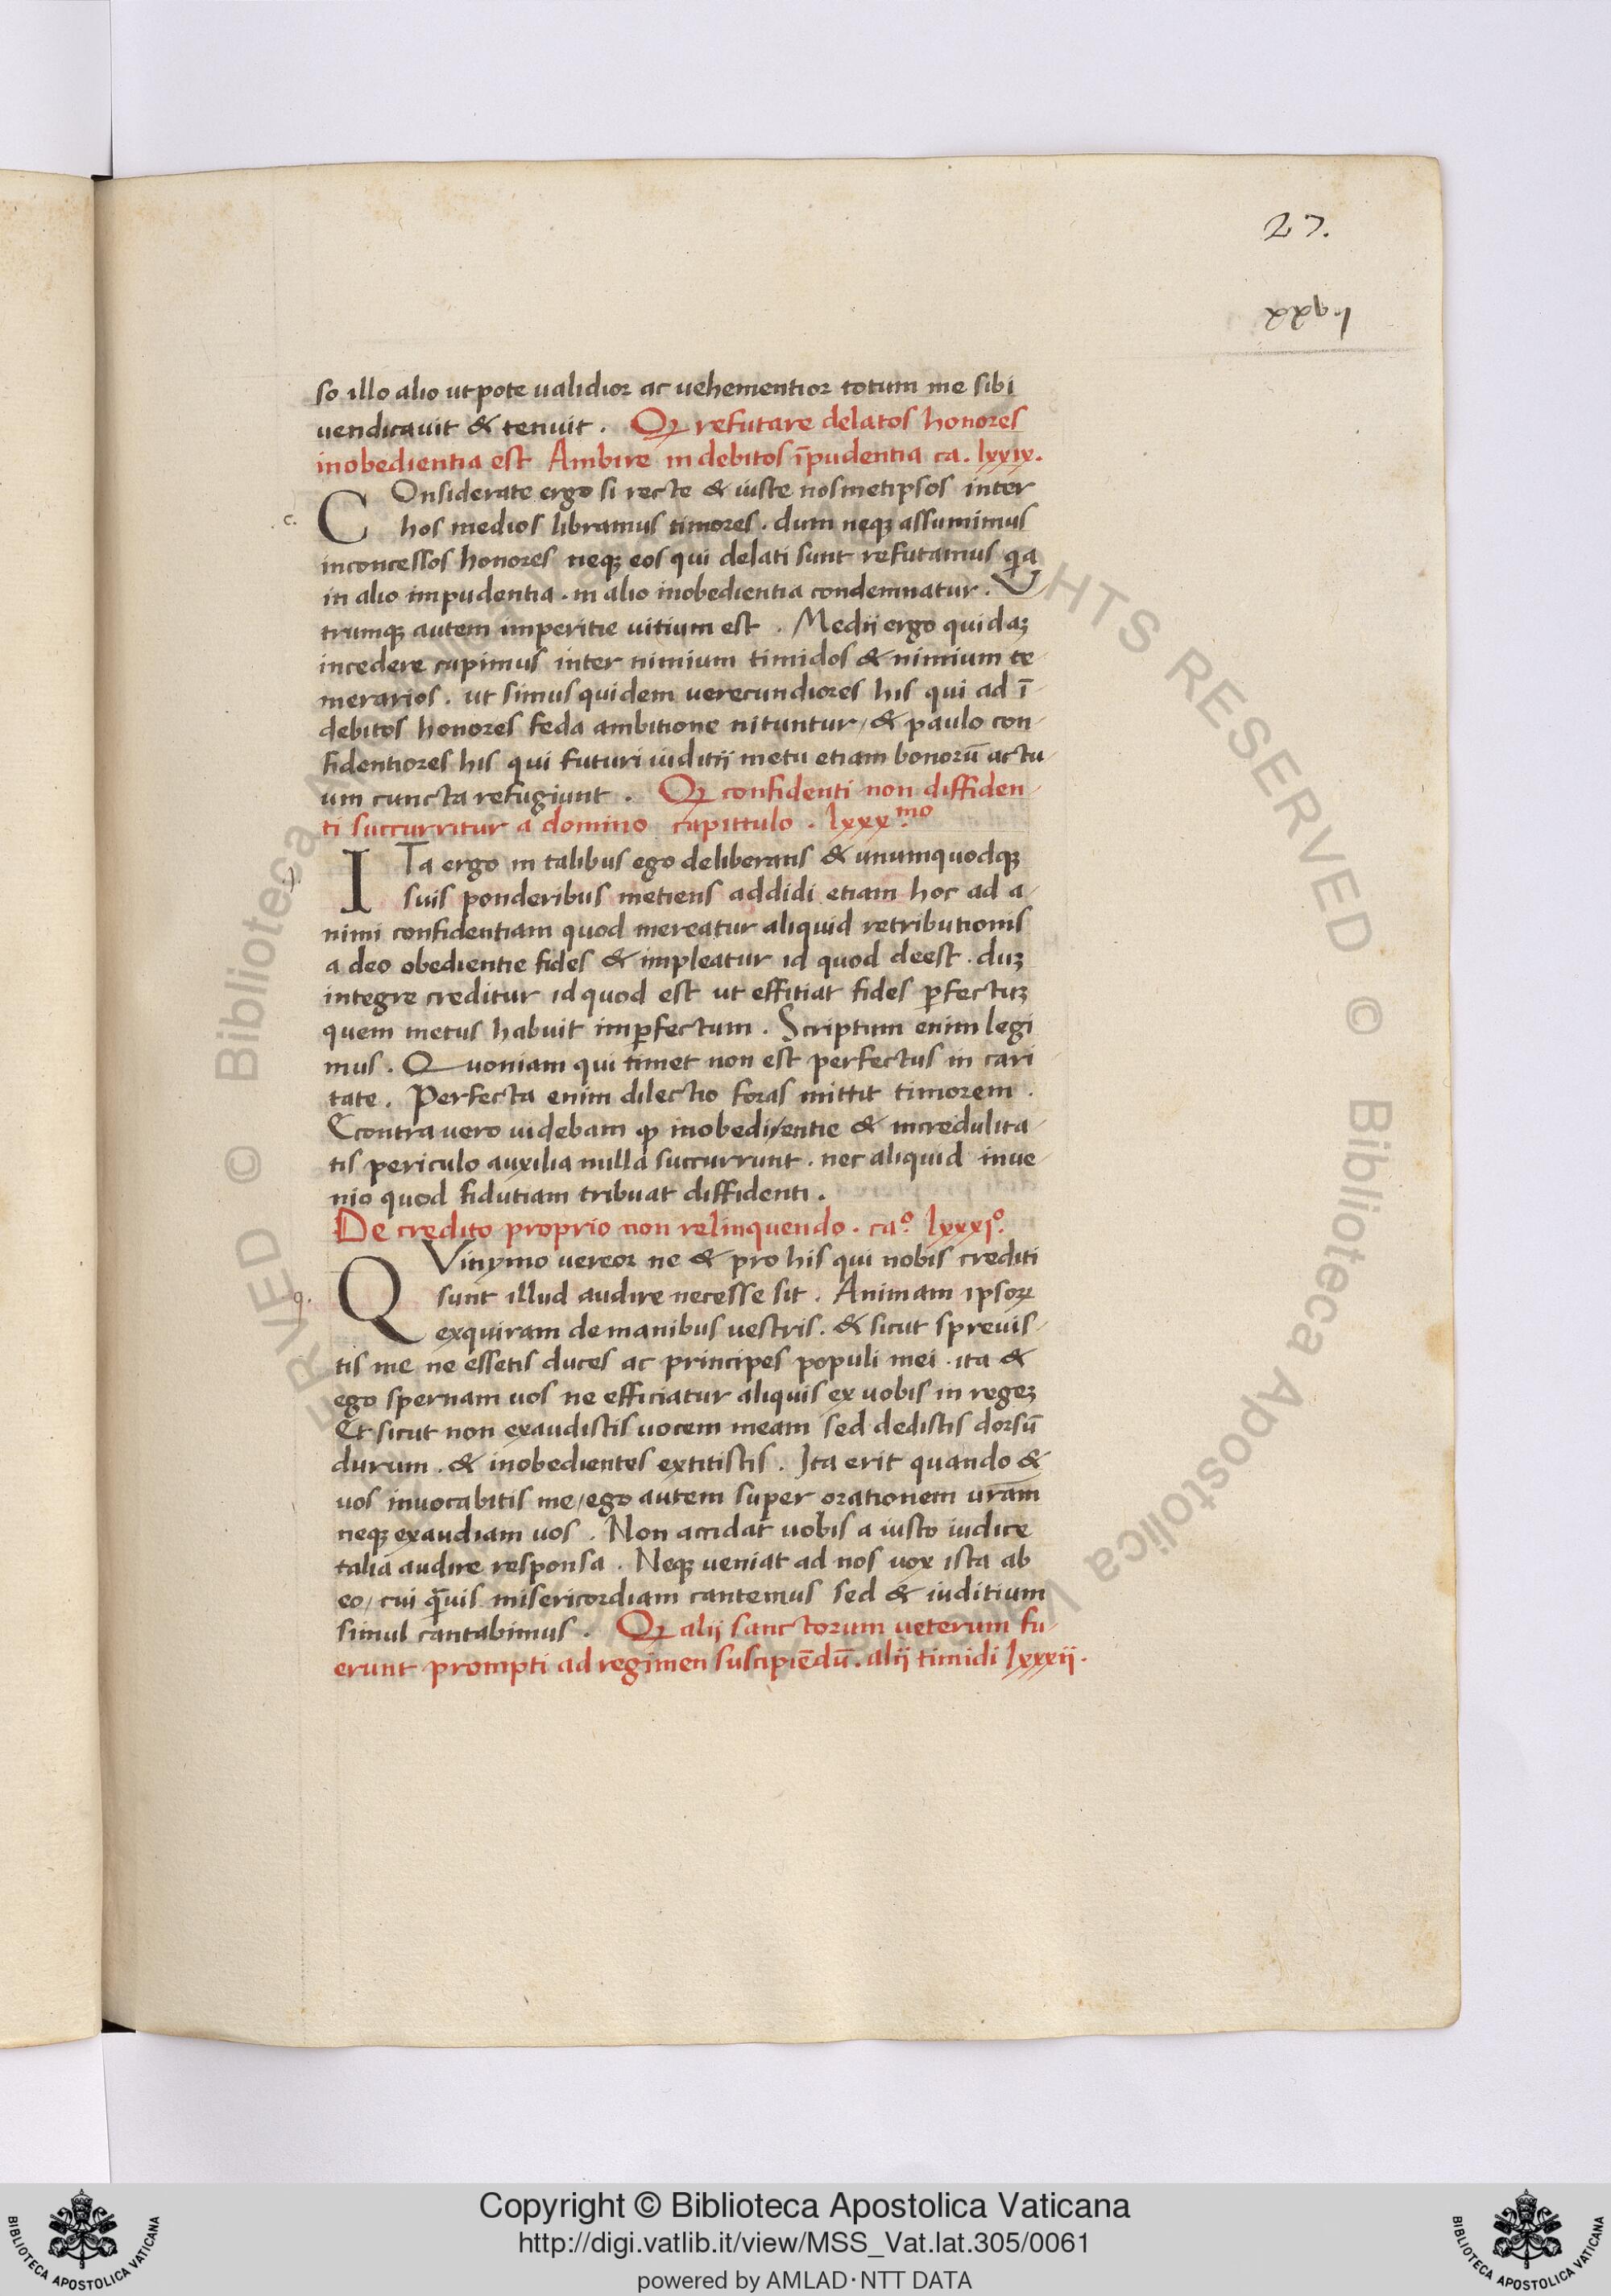 27.
so illo alio utpote ualidior ac uehementior totum me sibi
uendicauit & tenuit . Qꝫ refutare delatos honores
inobedientia est Ambire indebitos īpudentia ca. lxxix.
COnsiderate ergo si recte & iuste nosmetipsos inter
c.
hos medios libramus timores . dum neqꝫ assumimus
inconcessos honores neqꝫ eos qui delati sunt refutamus q̄a
in alio impudentia . in alio inobedientia condemnatur . V
trumqꝫ autem imperitie uitium est . Medii ergo quidaꝫ
incedere cupimus inter nimium timidos & nimium te-
merarios . ut simus quidem uerecundiores his qui ad ī-
debitos honores feda ambitione nituntur / & paulo con-
fidentiores his qui futuri iuditii metu etiam bonorū actu-
um cuncta refugiunt . Qꝫ confidenti non diffiden-
ti succurritur a domino capittulo . lxxx.mo
ITa ergo in talibus ego deliberans & unumquodqꝫ
suis ponderibus metiens addidi etiam hoc ad a-
nimi confidentiam quod mereatur aliquid retributionis
a deo obedientie fides & impleatur id quod deest . duꝫ
integre creditur id quod est ut effitiat fides ꝑfectuꝫ
quem metus habuit imꝑfectum . Scriptum enim legi
mus . Quoniam qui timet non est perfectus in cari-
tate . Perfecta enim dilectio foras mittit timorem .
Econtra uero uidebam ꝙ inobedi/entie & incredulita-
tis periculo auxilia nulla succurrunt . nec aliquid inue-
nio quod fidutiam tribuat diffidenti .
De credito proprio non relinquendo . caº. lxxxjº.
QVinymo uereor ne & pro his qui nobis crediti
q.
sunt illud audire necesse sit . Animam ipsoꝝ
exquiram de manibus uestris . & sicut spreuis-
tis me ne essetis duces ac principes populi mei . ita &
ego spernam uos ne efficiatur aliquis ex uobis in regeꝫ
Et sicut non exaudistis uocem meam sed dedistis dorsū
durum . & inobedientes extitistis . Ita erit quando &
uos inuocabitis me / ego autem super orationem ur̄am
neqꝫ exaudiam uos . Non accidat uobis a iusto iudice
talia audire responsa . Neqꝫ ueniat ad nos uox ista ab
eo / cui q̄uis misericordiam cantemus sed & iuditium
simul cantabimus . Qꝫ alij sanctorum ueterum fu-
erunt prompti ad regimen suscipiēdū . alii timidi lxxxii .
Copyright © Biblioteca Apostolica Vaticana
http://digi.vatlib.it/view/MSS_Vat.lat.305/0061
powered by AMLAD·NTT DATA
BIBLIOTECA APOSTOLICA VATICANA
BIBLIOTECA APOSTOLICA VATICANA